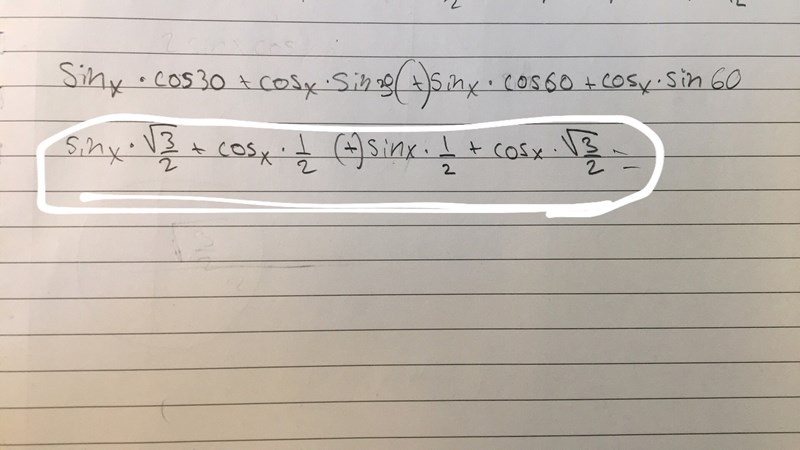 sinx · cos30 + cosx · sin30 (+) sinx · cos60 + cosx · sin 60
sinx · √3/2 + cosx · 1/2 (+) sinx · 1/2 + cosx · √3/2 =